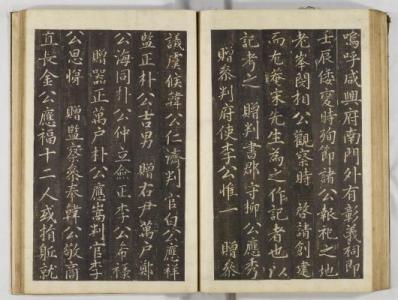 嗚呼咸興府南門外有彰義祠即
壬辰倭變時殉節諸公報祀之地
老峯閔相公觀察時 啓請創建
而尤菴宋先生為之作記者也以
記考之 贈判書郡守柳公應秀
贈參判府使李公惟一 贈參
議虞候韓公仁濟判官白公應祥
監正朴公吉男 贈右尹萬戶鄭
公海同朴公仲立僉正李公希祿
贈器正萬戶朴公應嵩判官李
公思悌 贈監察參奉韓公敬商
直長金公應福十二人或捐軀就